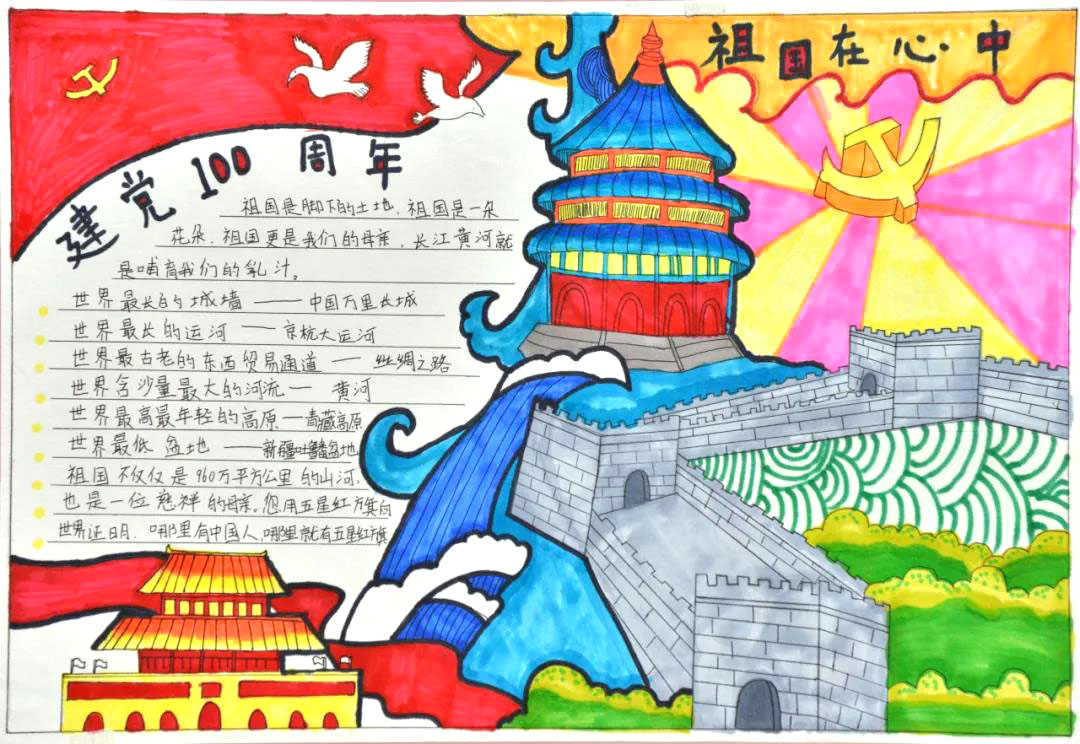 祖国在心中
建党100周年
祖国是脚下的土地，祖国是一朵
花朵，祖国更是我们的母亲，长江黄河就
是哺育我们的乳汁。
世界最长的城墙——中国万里长城
世界最长的运河——京杭大运河
世界最古老的东西贸易通道——丝绸之路
世界含沙量最大的河流—黄河
世界最高最年轻的高原—青藏高原
世界最低盆地——新疆吐鲁番盆地
祖国不仅仅是960万平方公里的山河，
也是一位慈祥的母亲。您用五星红旗向
世界证明，哪里有中国人，哪里就有五星红旗